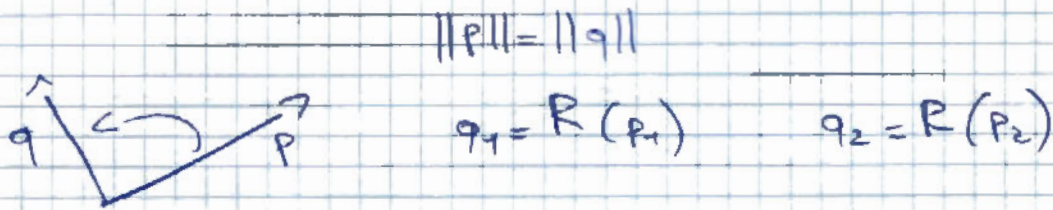 ||p|| = ||q||
q p q₁ = R (p₁) q₂ = R (p₂)